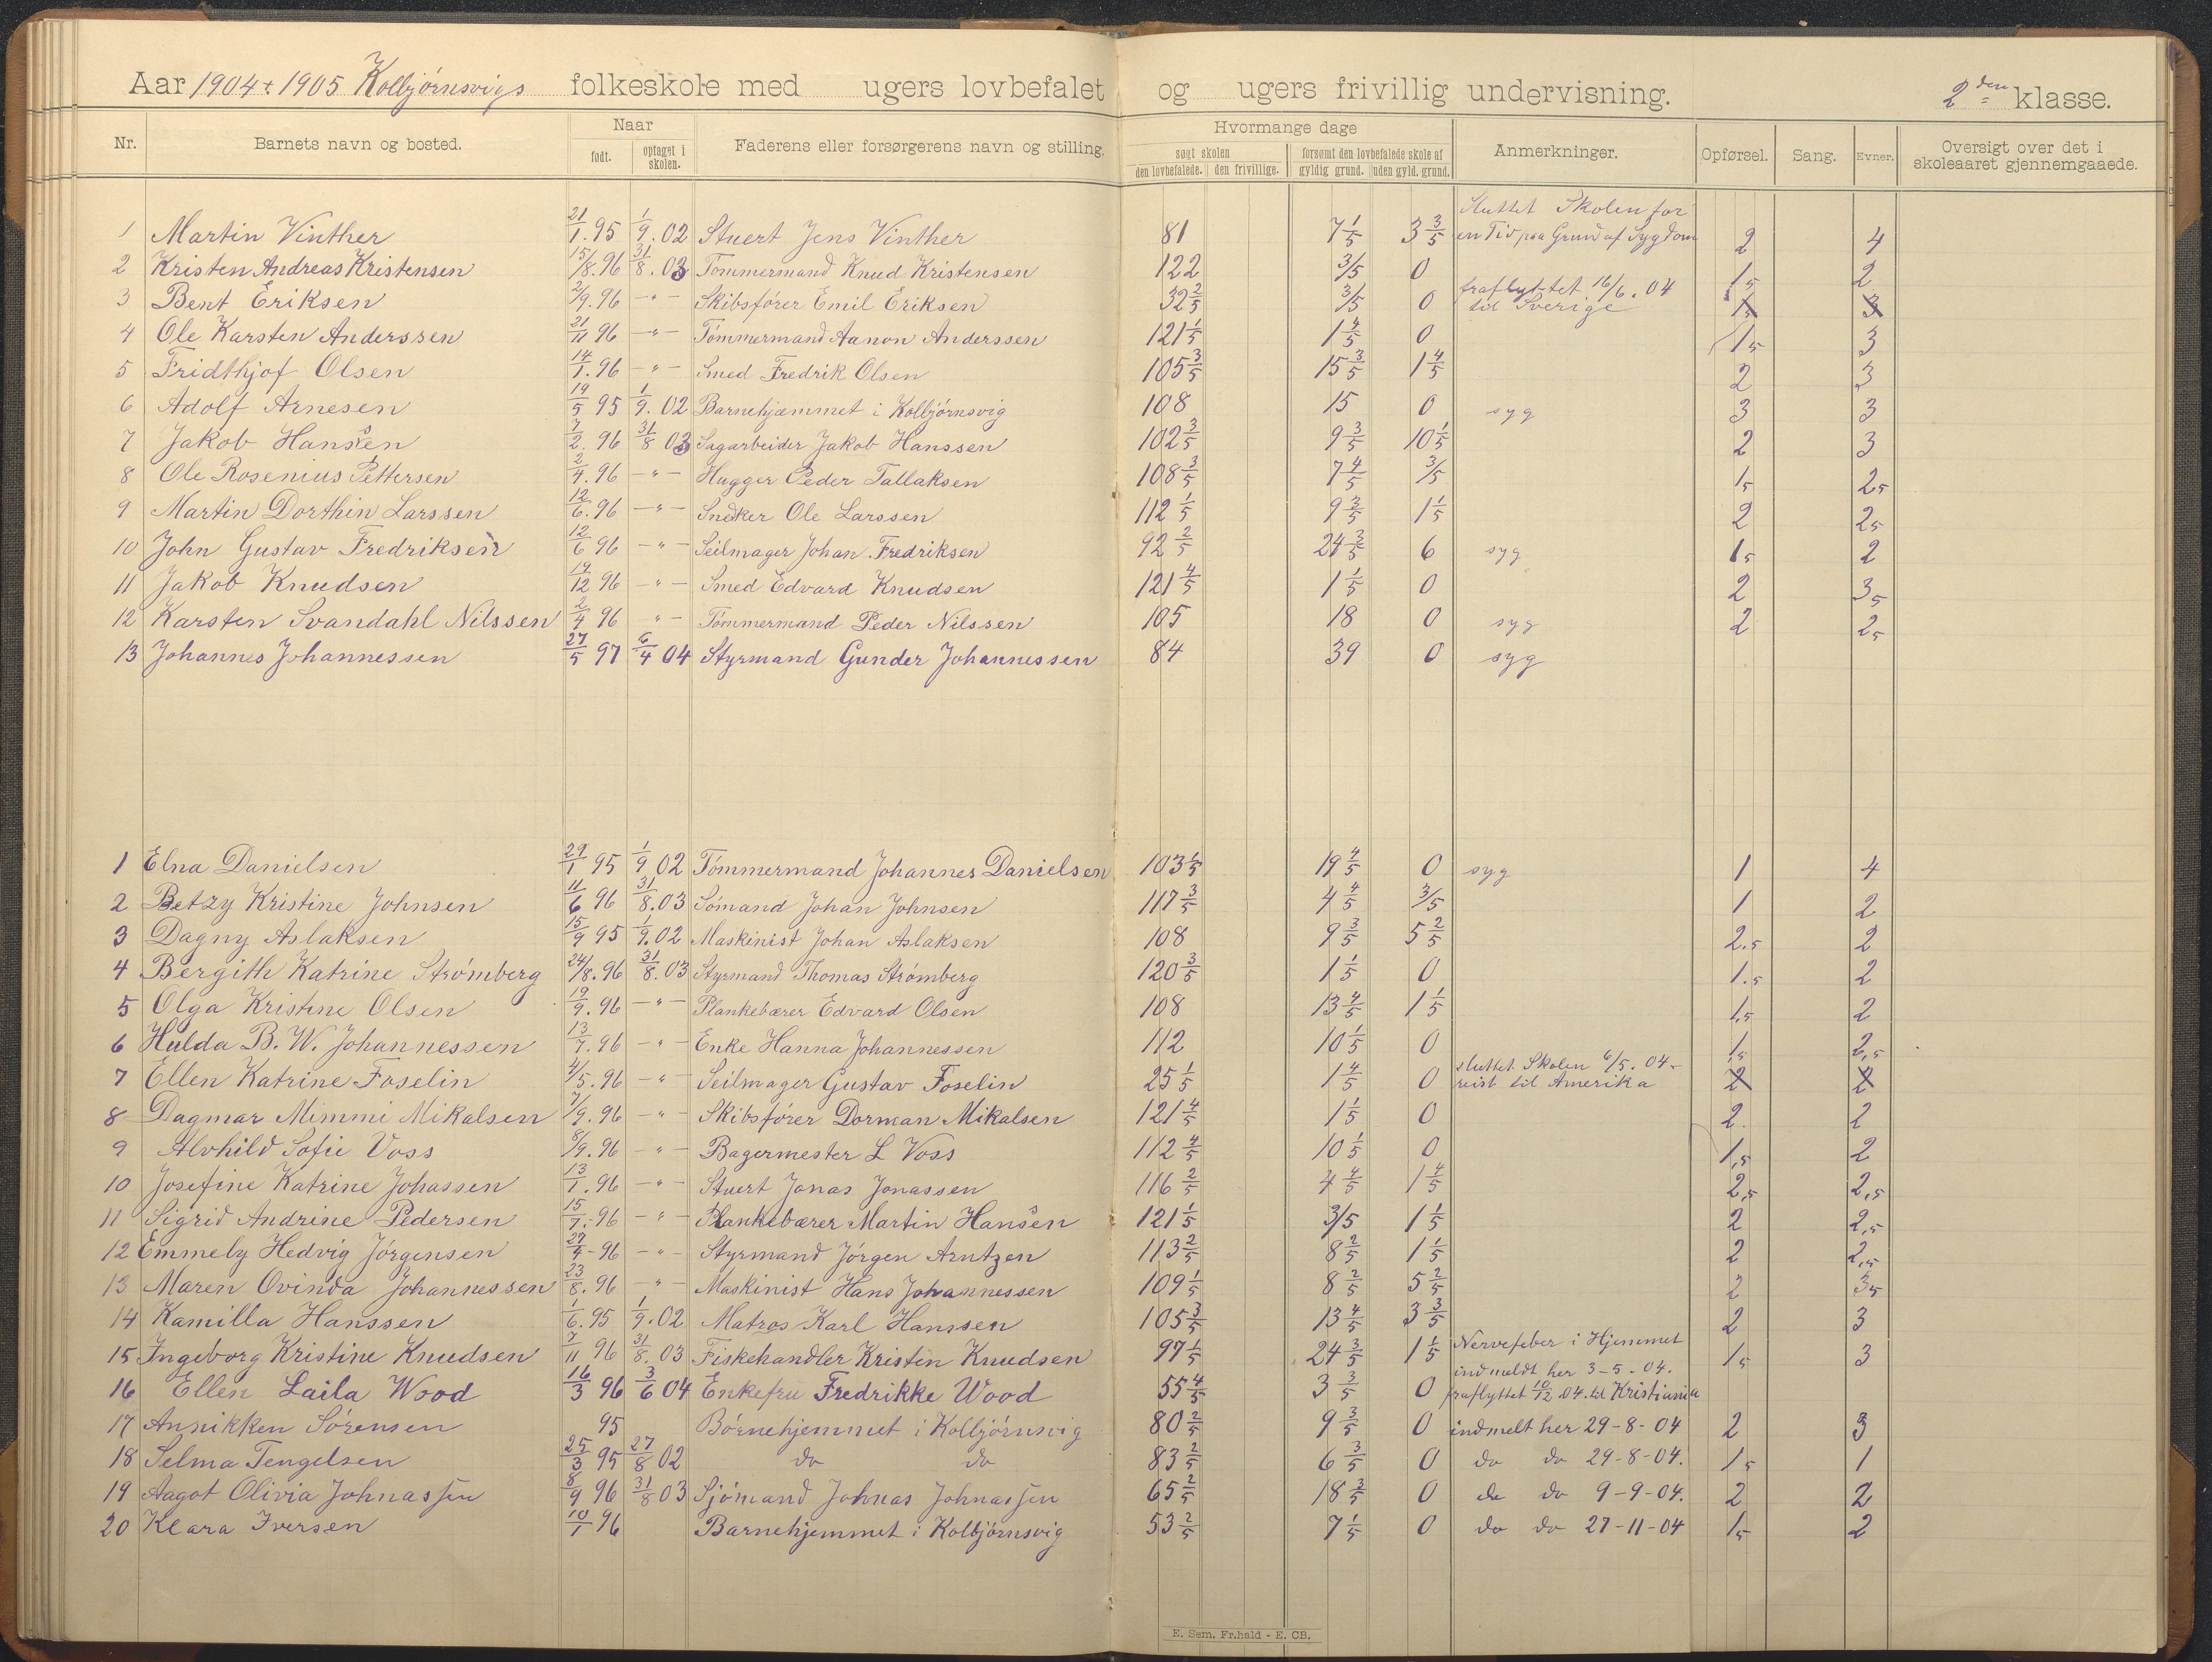 Aar 1904 + 1905 Kolbjörnsvigs folkeskole med ugers lovbefalet og ugers frivillig undervisning. 2den klasse.
Nr. Barnets navn og bosted. Naar født. optaget i skolen. Faderens eller forsørgerens navn og stilling. Hvormange dage søgt skolen den lovbefalede. den frivillige. forsømt den lovbefalede skole af gyldig grund. uden gyld. grund. Anmerkninger. Opførsel. Sang. Evner. Oversigt over det i skoleaaret gjennemgaaede.
1 Martin Vinther 21/1.95 1/9.02 Stuert Jens Vinther 81 7 1/5 3 3/5 Sluttet Skolen for en Tid paa Grund af Sygdom 2 4
2 Kristen Andreas Kristensen 15/8.96 31/8.03 Tömmermand Knud Kristensen 122 3/5 0 1,5 2
3 Bent Eriksen 2/9.96 -"- Skibsförer Emil Eriksen 32 2/5 3/5 0 fraflyttet 16/6.04 til Sverige 1,5 3
4 Ole Karsten Anderssen 21/11 96 -"- Tömmermand Aanon Anderssen 121 1/5 1 4/5 0 1,5 3
5 Fridthjof Olsen 14/1.96 -"- Smed Fredrik Olsen 105 3/5 15 3/5 1 4/5 2 3
6 Adolf Arnesen 19/5 95 1/9.02 Barnehjæmmet i Kolbjörnsvig 108 15 0 syg 3 3
7 Jakob Hanssen 7/2.96 31/8 03 Sagarbeider Jakob Hanssen 102 3/5 9 3/5 10 1/5 2 3
8 Ole Rosenius Pettersen 2/4.96 -"- Hugger Peder Tallaksen 108 3/5 7 4/5 3/5 1,5 2,5
9 Martin Dorthin Larssen 12/6.96 -"- Snedker Ole Larssen 112 1/5 9 2/5 1 1/5 2 2,5
10 John Gustav Fredriksen 12/6 96 -"- Seilmager Johan Fredriksen 92 2/5 24 3/5 6 syg 1,5 2
11 Jakob Knudsen 14/12 96 -"- Smed Edvard Knudsen 121 4/5 1 1/5 0 2 3,5
12 Karsten Svandahl Nilssen 2/4 96 "- Tömmermand Peder Nilssen 105 18 0 syg 2 2,5
13 Johannes Johannessen 27/5 97 6/4 04 Styrmand Gunder Johannessen 84 39 0 syg
1 Elna Danielsen 29/1 95 1/9 02 Tömmermand Johannes Danielsen 103 1/5 19 4/5 0 syg 1 4
2 Betzy Kristine Johnsen 11/6 96 31/8.03 Sömand Johan Johnsen 117 3/5 4 4/5 3/5 1 2
3 Dagny Aslaksen 15/9 95 1/9.02 Maskinist Johan Aslaksen 108 9 3/5 5 2/5 2.5 2
4 Bergith Katrine Strömberg 24/8.96 31/8.03 Styrmand Thomas Strömberg 120 3/5 1 1/5 0 1.5 2
5 Olga Kristine Olsen 19/9.96 -"- Plankebærer Edvard Olsen 108 13 4/5 1 1/5 1,5 2
6 Hulda B. W. Johannessen 13/7.96 -"- Enke Hanna Johannessen 112 10 1/5 0 1,5 2,5
7 Ellen Katrine Foselin 4/5.96 -"- Seilmager Gustav Foselin 25 1/5 1 4/5 0 sluttet Skolen 6/5.04- reist til Amerika 2 2
8 Dagmar Mimmi Mikalsen 7/9.96 -"- Skibsförer Dorman Mikalsen 121 4/5 1 1/5 0 2. 2
9 Alvhild Sofie Voss 8/9.96 -"- Bagermester L Voss 112 4/5 10 1/5 0 1,5 2
10 Josefine Katrine Johassen 13/1.96 -"- Stuert Jonas Jonassen 116 2/5 4 4/5 1 4/5 2,5 2,5
11 Sigrid Andrine Pedersen 15/7.-96 -"- Plankebærer Martin Hansen 121 1/5 3/5 1 1/5 2 2,5
12 Emmely Hedvig Jörgensen 27/4-96 -"- Styrmand Jörgen Arntzen 113 2/5 8 2/5 1 1/5 2 2,5
13 Maren Ovinda Johannessen 23/8.96 -"- Maskinist Hans Johannessen 109 1/5 8 2/5 5 2/5 2 3,5
14 Kamilla Hanssen 1/6.95 1/9.02 Matros Karl Hanssen 105 3/5 13 4/5 3 3/5 2 3
15 Ingeborg Kristine Knudsen 7/11 96 31/8.03 Fiskehandler Kristen Knudsen 97 1/5 24 3/5 1 1/5 Nervefeber i Hjemmet 1,5 3
16 Ellen Laila Wood 16/3 96 3/6 04 Enkefru Fredrikke Wood 55 4/5 3 3/5 0 indmeldt her 3-5-04. fraflyttet 10/12.04. til Kristiania
17 Annikken Sörensen 95 Börnehjemmet i Kolbjörnsvig 80 2/5 9 3/5 0 indmelt her 29-8-04 2 3
18 Selma Tengelsen 25/3 95 27/8 02 do do 83 2/5 6 3/5 0 do do 29-8-04. 1,5 1
19 Aagot Olivia Johnassen 8/9 96 31/8 03 Sjömand Johnas Johnassen 65 2/5 18 3/5 0 do do 9-9-04. 2 2
20 Klara Iversen 10/1 96 Barnehjemmet i Kolbjörnsvig 53 2/5 7 1/5 0 do do 27-11-04 1,5 2
E. Sem, Fr.hald - E. CB.